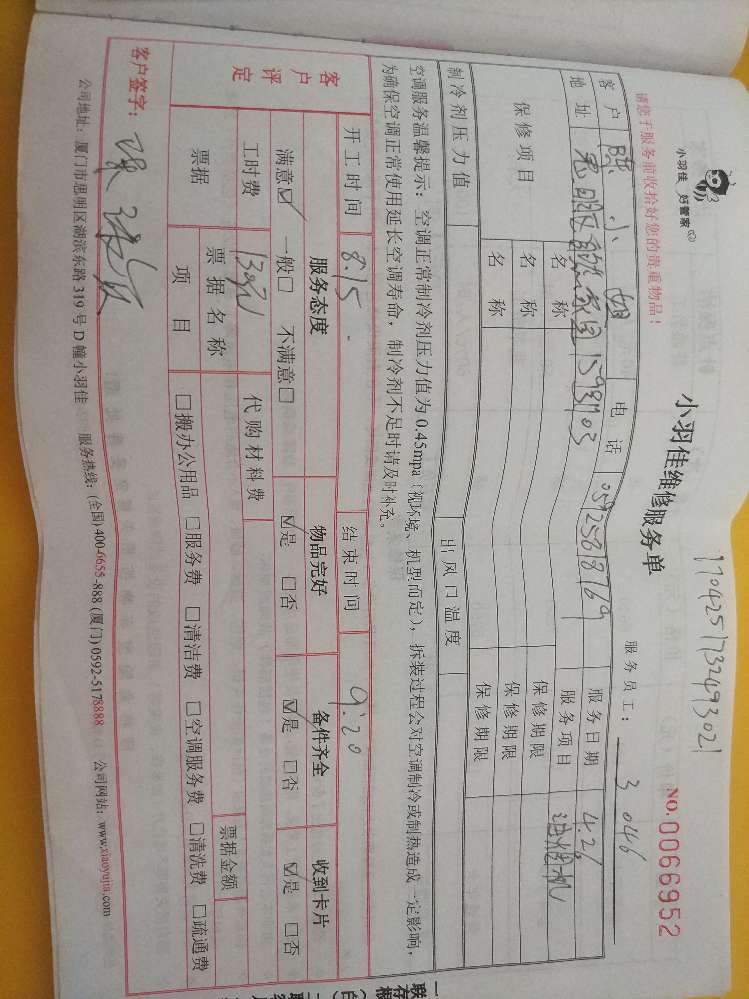 小羽佳 好管家
请您于服务前收拾好您的贵重物品！
小羽佳维修服务单
NO.0066952
服务员工： 3046
客户 小姐 电话 服务日期 4.26
地址 服务项目 油烟机
保修项目 名称 保修期限
名称 保修期限
名称 保修期限
制冷剂压力值 出风口温度
空调服务温馨提示：空调正常制冷剂压力值为0.45mpa（视环境、机型而定），拆装过程会对空调制冷或制热造成一定影响，
为确保空调正常使用延长空调寿命，制冷剂不足时请及时补充。
开工时间 8:15 结束时间 9:20
客户评定 服务态度 物品完好 备件齐全 收到卡片
满意☑ 一般□ 不满意□ ☑是 □否 ☑是 □否 ☑是 □否
工时费 130元 代购材料费
票据 票据名称 票据金额
项目 □搬办公用品 □服务费 □清洁费 □空调服务费 □清洗费 □疏通费
客户签字：
公司地址：厦门市思明区湖滨东路319号D幢小羽佳 服务热线：(全国)400-6655-888 (厦门)0592-5178888 公司网站：www.xiaoyujia.com